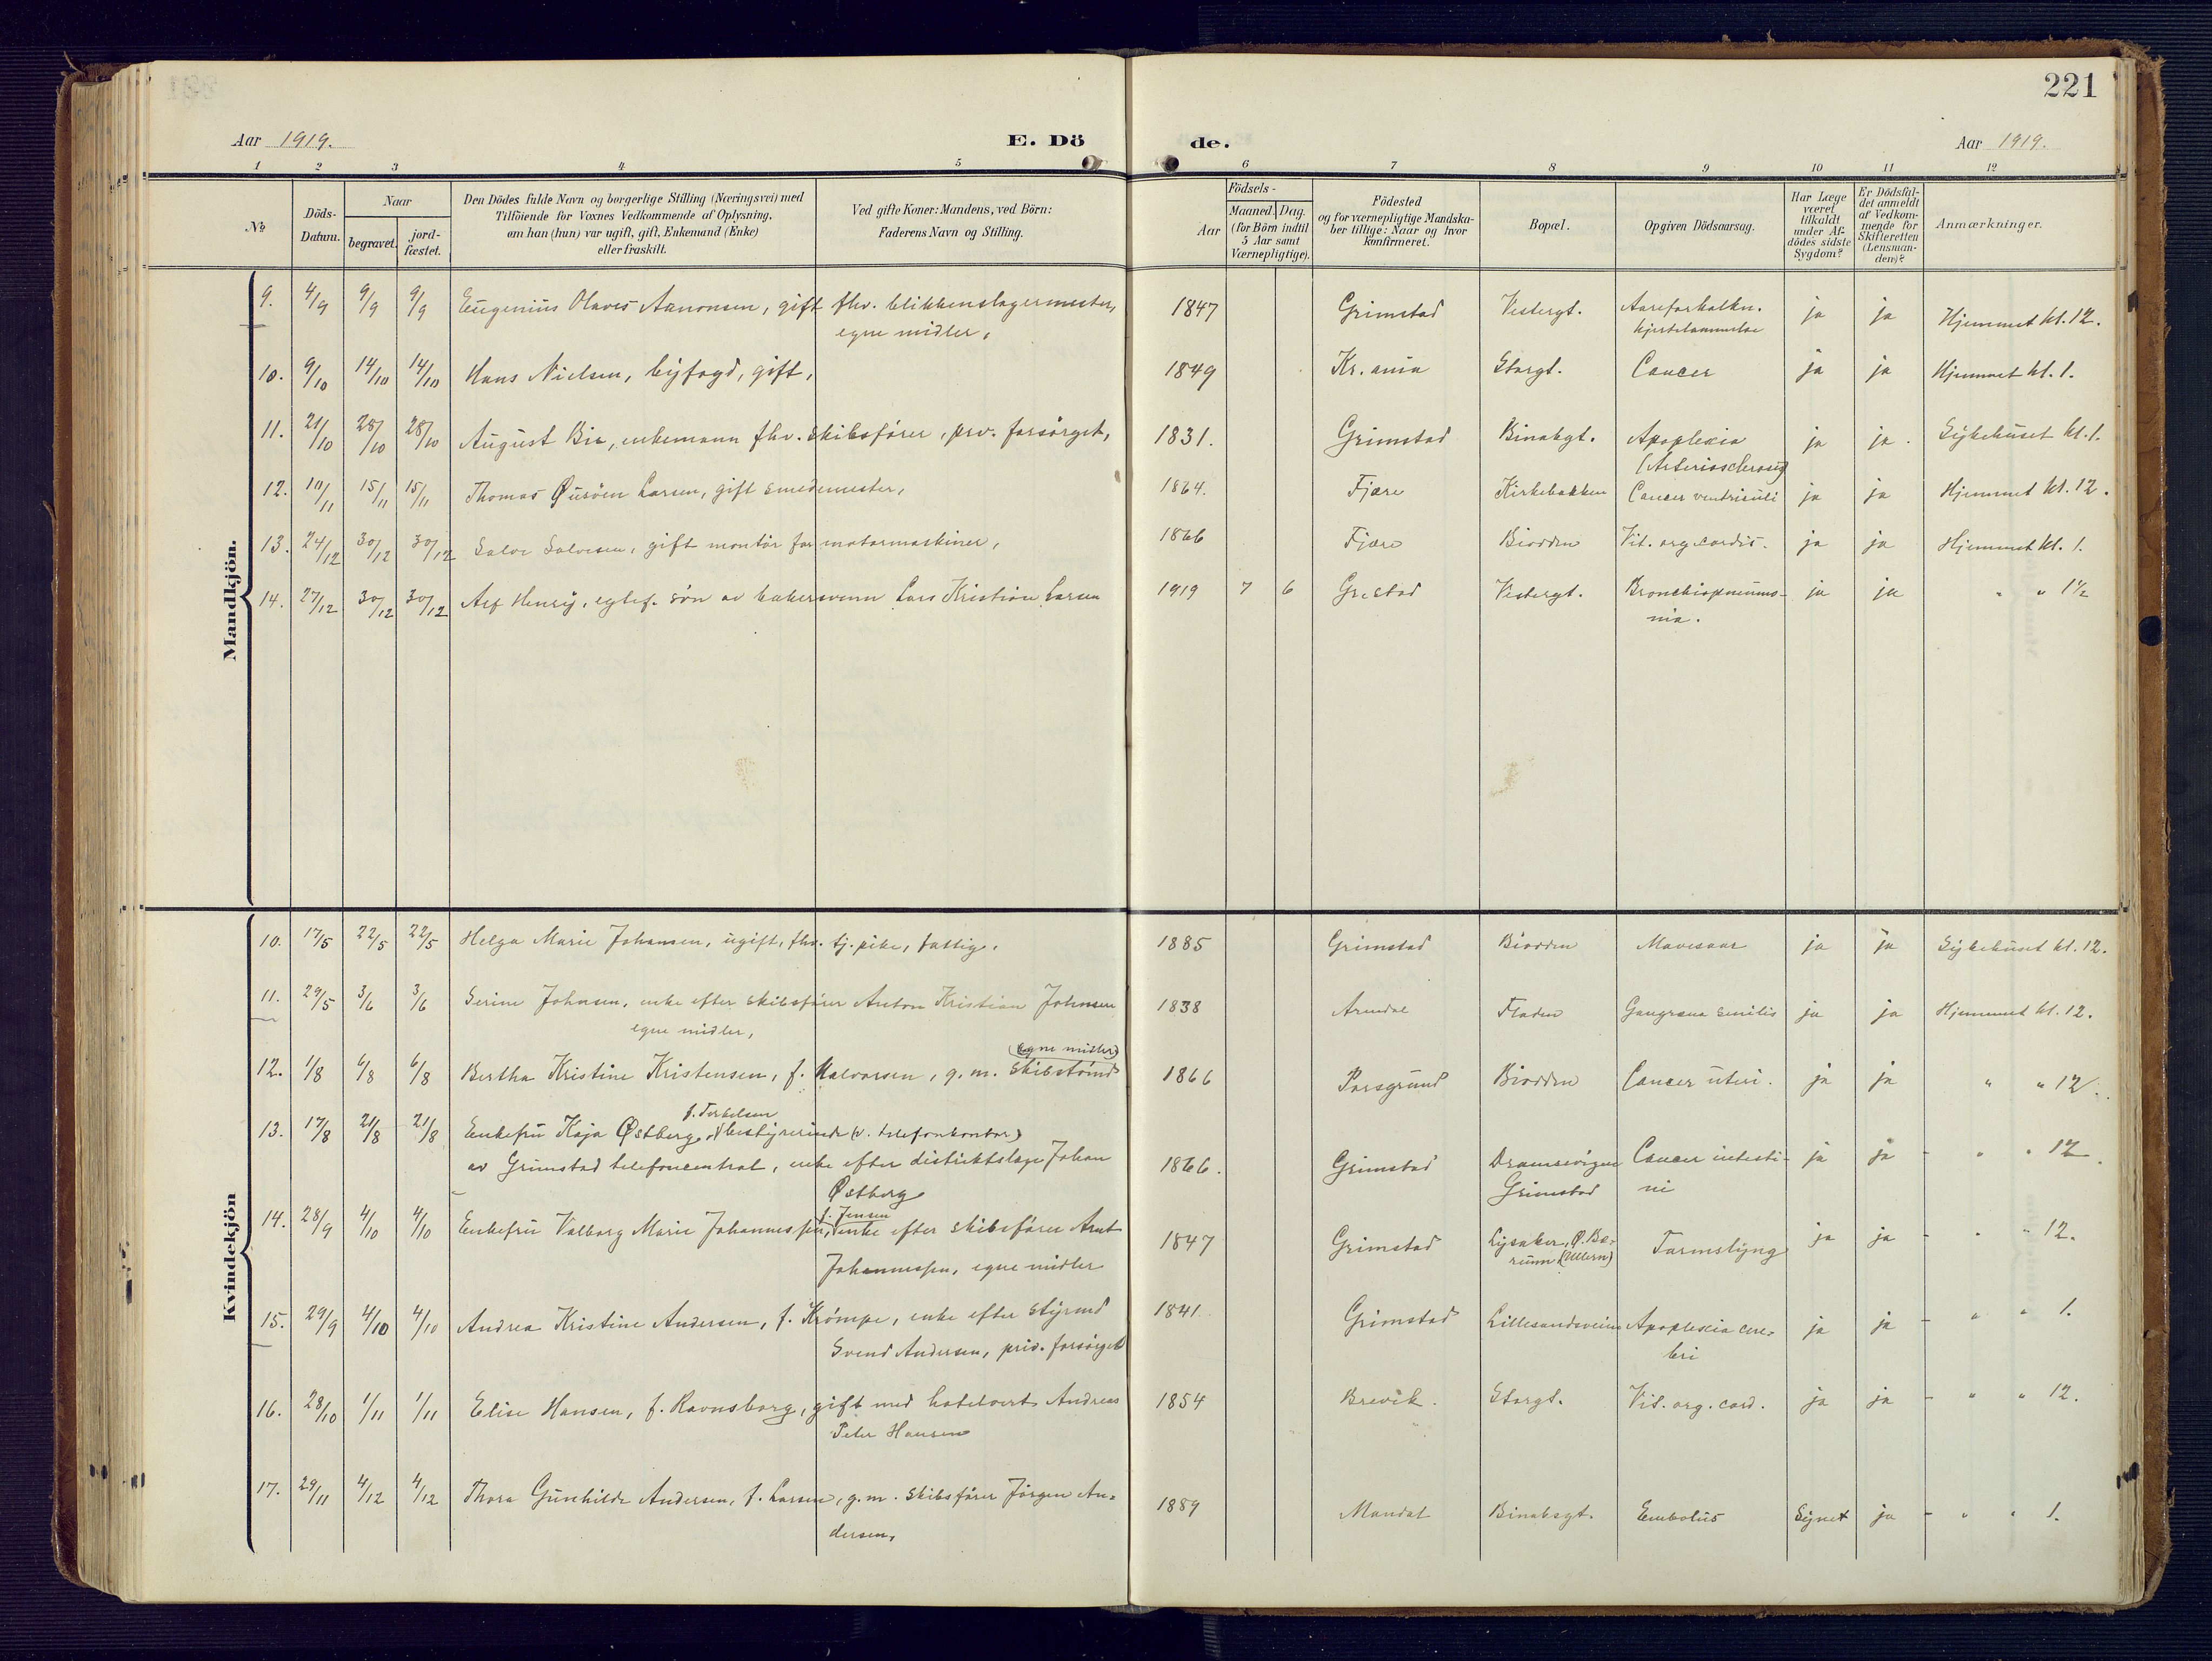 221
Aar 1919. E. Dö de. Aar 1919.
1 2 3 4 5 6 7 8 9 10 11 12
No
Döds-Datum.
Naar
begravet.
jord-fæstet.
Den Dödes fulde Navn og borgerlige Stilling (Næringsvei) med
Tilföiende for Voxnes Vedkommende af Oplysning,
om han (hun) var ugift, gift, Enkemand (Enke)
eller fraskilt.
Ved gifte Koner: Mandens, ved Börn:
Faderens Navn og Stilling.
Födsels-
Aar
Maaned. Dag.
(for Börn indtil
5 Aar samt
Værnepligtige).
Födested
og for værnepligtige Mandska-
ber tillige: Naar og hvor
konfirmeret.
Bopæl.
Opgiven Dödsaarsag.
Har Læge
været
tilkaldt
under Af-
dödes sidste
Sygdom?
Er Dödsfal-
det anmeldt
af Vedkom-
mende for
Skifteretten
(Lensman-
den)?
Anmærkninger.
Mandkjön.
9. 4/9 9/9 9/9 Eugenius Olaves Aanonsen, gift fhv. blikkenslagermester, 1847 Grimstad Vestergt. Aareforkalkn. ja ja Hjemmet kl. 12.
egne midler, hjertelammelse
10. 9/10 14/10 14/10 Hans Nielsen, byfogd, gift, 1849 Kr.ania Storgt. Cancer ja ja Hjemmet kl. 1.
11. 21/10 28/10 28/10 August Bie, enkemann fhv. skibsfører, prv. forsørget, 1831. Grimstad Binabgt. Apoplexia ja ja. Sykehuset kl. 1.
(Arteriosclerosis)
12. 10/11 15/11 15/11 Thomas Larsen, gift smedemester, 1864. Fjære Kirkebakken Cancer ventriculi ja ja Hjemmet kl. 12.
13. 24/12 30/12 30/12 Salve Salvesen, gift montør for motormaskiner, 1866 Fjære Biodden Vit. org. cordis. ja ja Hjemmet kl. 1.
14. 27/12 30/12 30/12 Alf Henry, egtef. søn av bakersvenn Lars Kristian Larsen 1919 7 6 Gr.stad Vestergt. Bronchiopneumo- ja ja " " 1½
nia.
Kvindekjön
10. 17/5 22/5 22/5 Helga Marie Johansen, ugift, fhv. tj.pike, fattig. 1885 Grimstad Biodden Mavesaar ja ja Sykehuset kl. 12.
11. 29/5 3/6 3/6 Serine Johnsen, enke efter skibsfører Anton Kristian Johnsen 1838 Arendal Fladen Gangræna senilis ja ja Hjemmet kl. 12.
egne midler,
(egne midler)
12. 1/8 6/8 6/8 Bertha Kristine Kristensen, f. Halvorsen, g.m. skibstømd 1866 Porsgrund Biodden Cancer uteri. ja ja " " 12.
f. Terkelsen
13. 17/8 21/8 21/8 Enkefru Kaja Østberg, bestyrerinde (v. telefonkontor)
av Grimstad telefoncentral, enke efter distriktslæge Johan 1866. Grimstad Cancer intesti- ja ja - " " 12.
Østberg Grimstad ni
f. Jensen
14. 28/9 4/10 4/10 Enkefru Valborg Marie Johannessen, enke efter skibsfører Arnt 1847 Grimstad Lysaker, Ø. Bæ- Tarmslyng ja ja - " " 12.
Johannessen, egne midler rum (Ullern)
15. 29/9 4/10 4/10 Andrea Kristine Andersen, f. Krømpe, enke efter styrmd 1841. Grimstad Lillesandsveien Apoplexia cere- ja ja - " " 1.
Svend Andersen, priv. forsørget bri
16. 28/10 1/11 1/11 Elise Hansen, f. Ravnsborg, gift med hotelvert Andreas 1854 Brevik. Storgt. Vit. org. cord. ja ja - " " 12.
Peter Hansen
17. 29/11 4/12 4/12 Thora Gunhilde Andersen, f. Larsen, g.m. skibsfører Jørgen An- 1889 Mandal Binabgt. Embolus Synet ja - " " 1.
dersen,